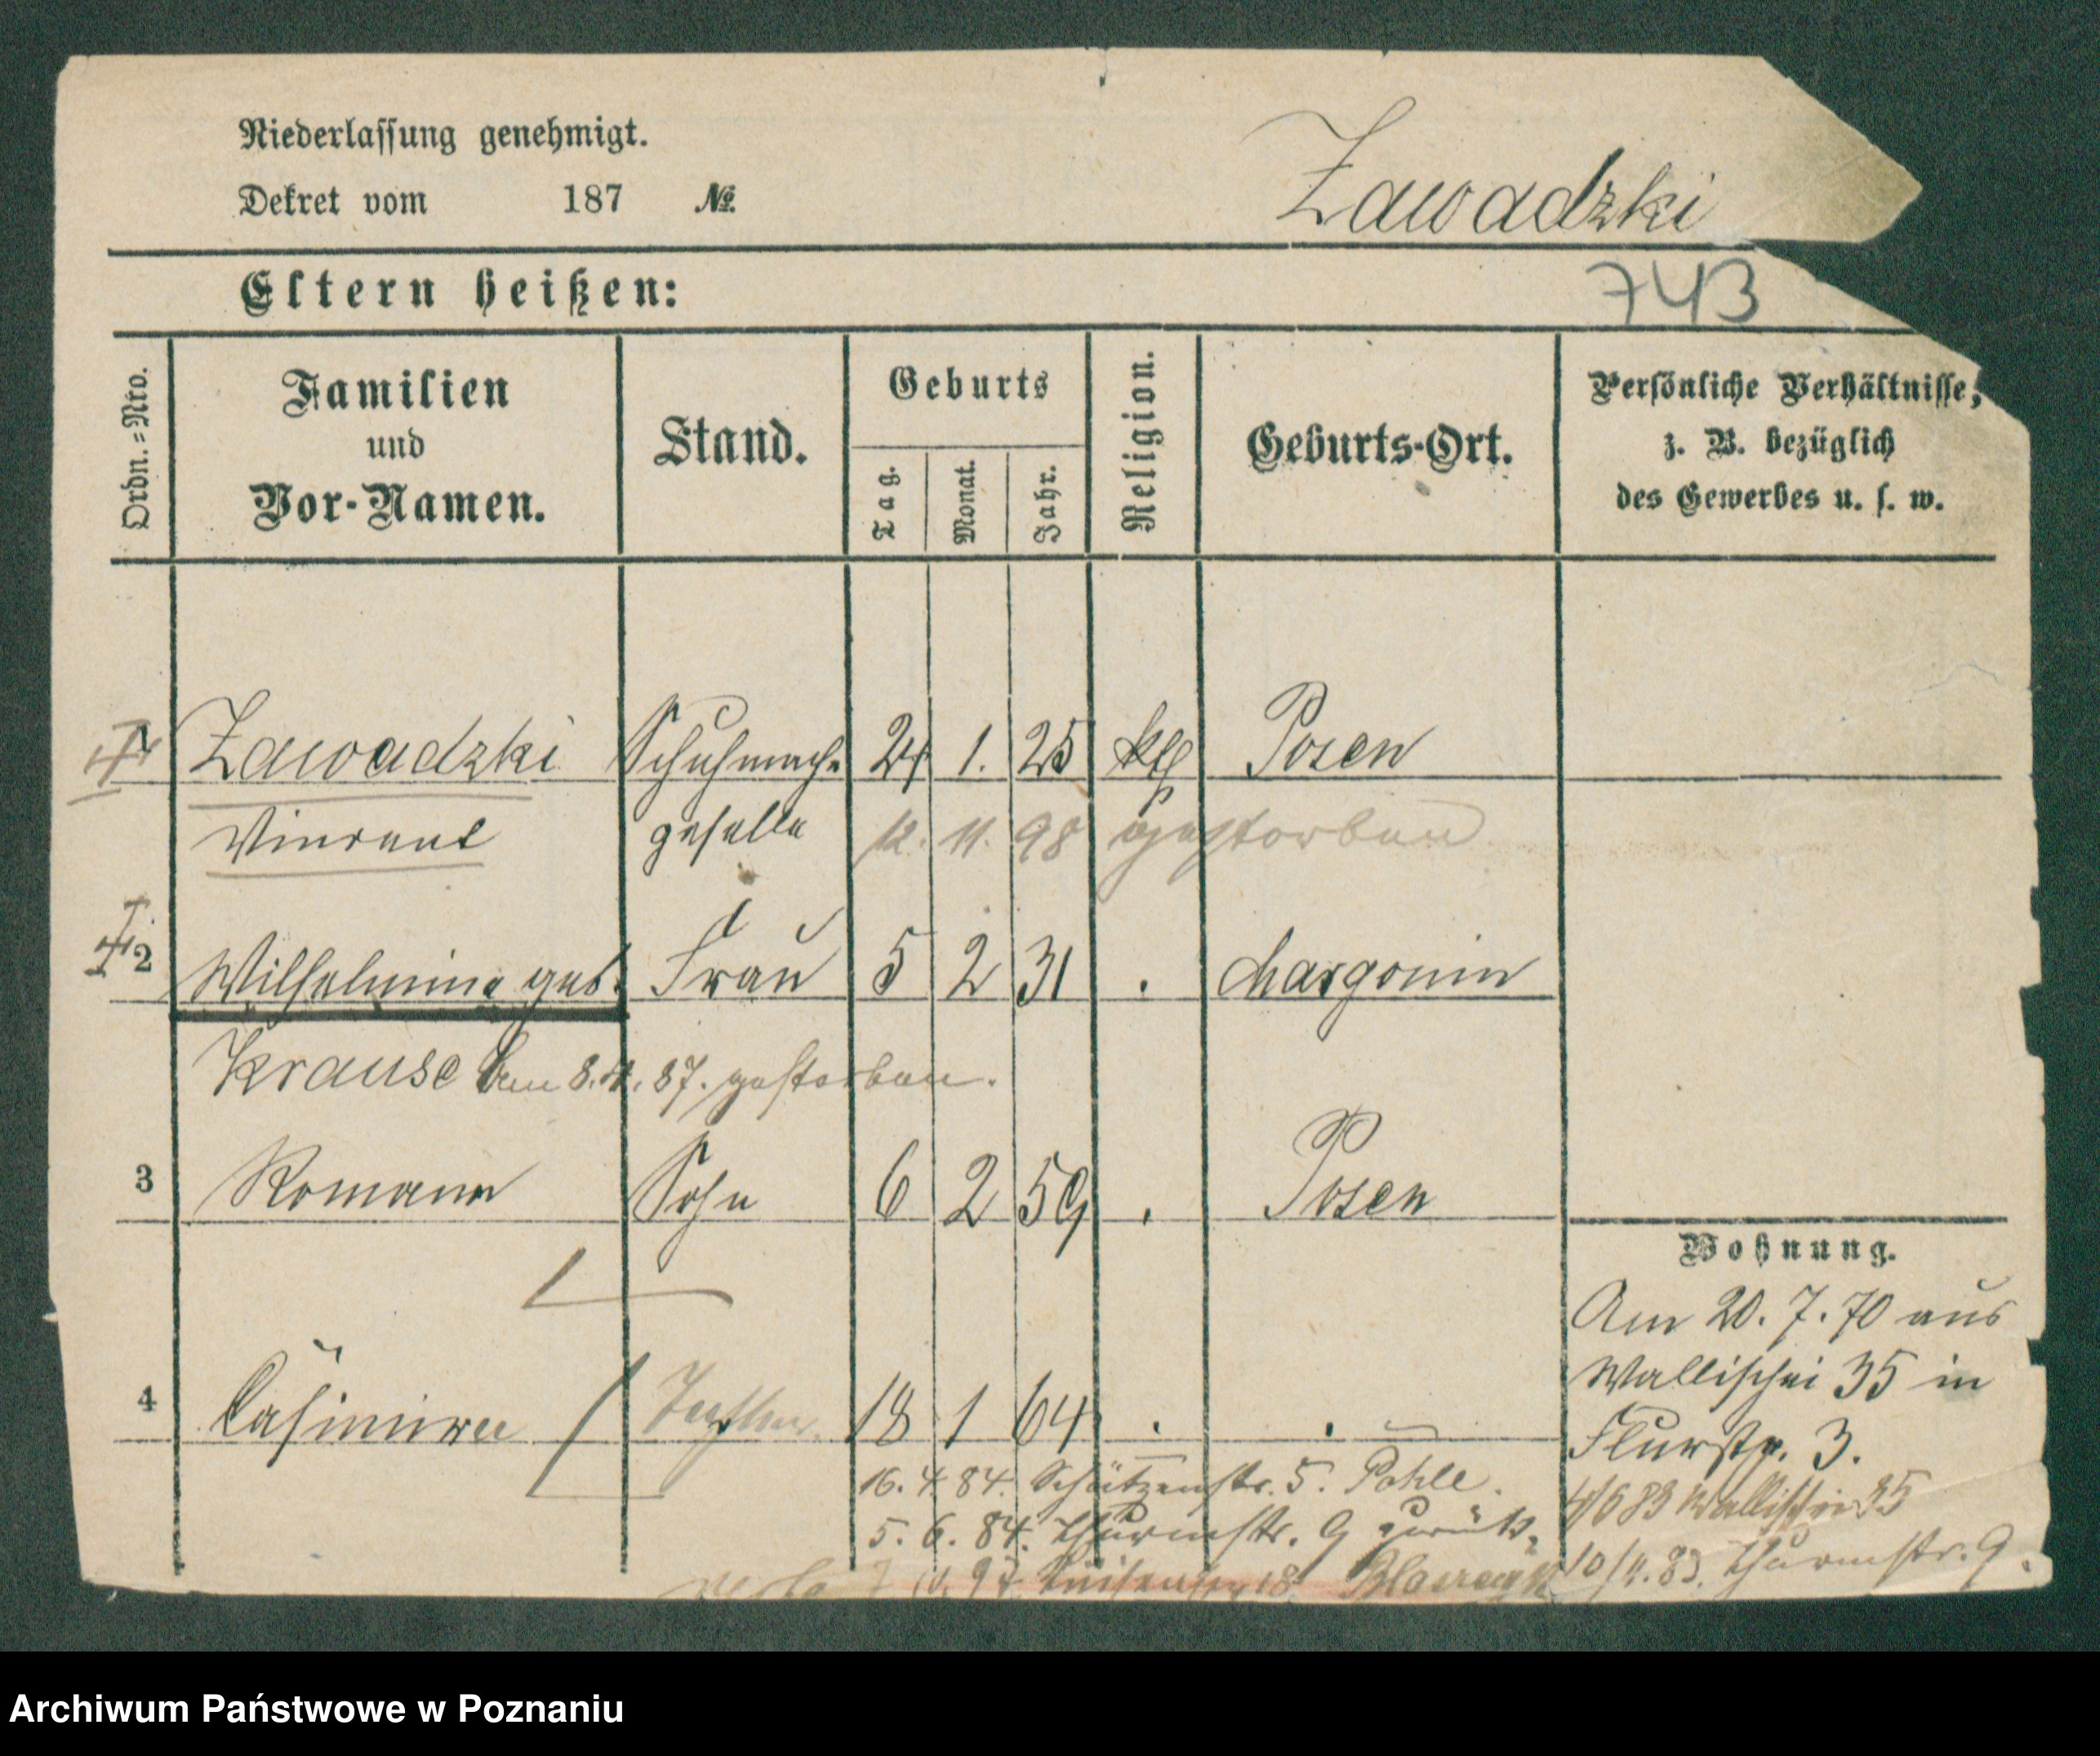 Niederlassung genehmigt.
Dekret vom 187 №
Zawadzki
Eltern heißen:
743
Ordn.=Nro.
Familien
und
Vor-Namen.
Stand.
Geburts
Tag.
Monat.
Jahr.
Religion.
Geburts-Ort.
Persönliche Verhältnisse,
z. B. bezüglich
des Gewerbes u. s. w.
1 Zawadzki Schuhmach- 24 1. 25 kth Posen
Vincent geselle 12. 11. 98 gestorben
2 Wilhelmine geb. Frau 5 2 31 . Margonin
Krause Am 8. 4. 87. gestorben.
3 Romann Sohn 6 2 59 . Posen
4 Casimira Tochter. 18 1 64 . .
16. 4. 84. Schützenstr. 5. Pohle.
5. 6. 84. Thurmstr. 9 zurück.
97 18
Wohnung.
Am 20. 7. 70 aus
Wallischei 35 in
Flurstr. 3.
4/6 83 Wallischei 35
10/4. 83. Thurmstr. 9.
Archiwum Państwowe w Poznaniu